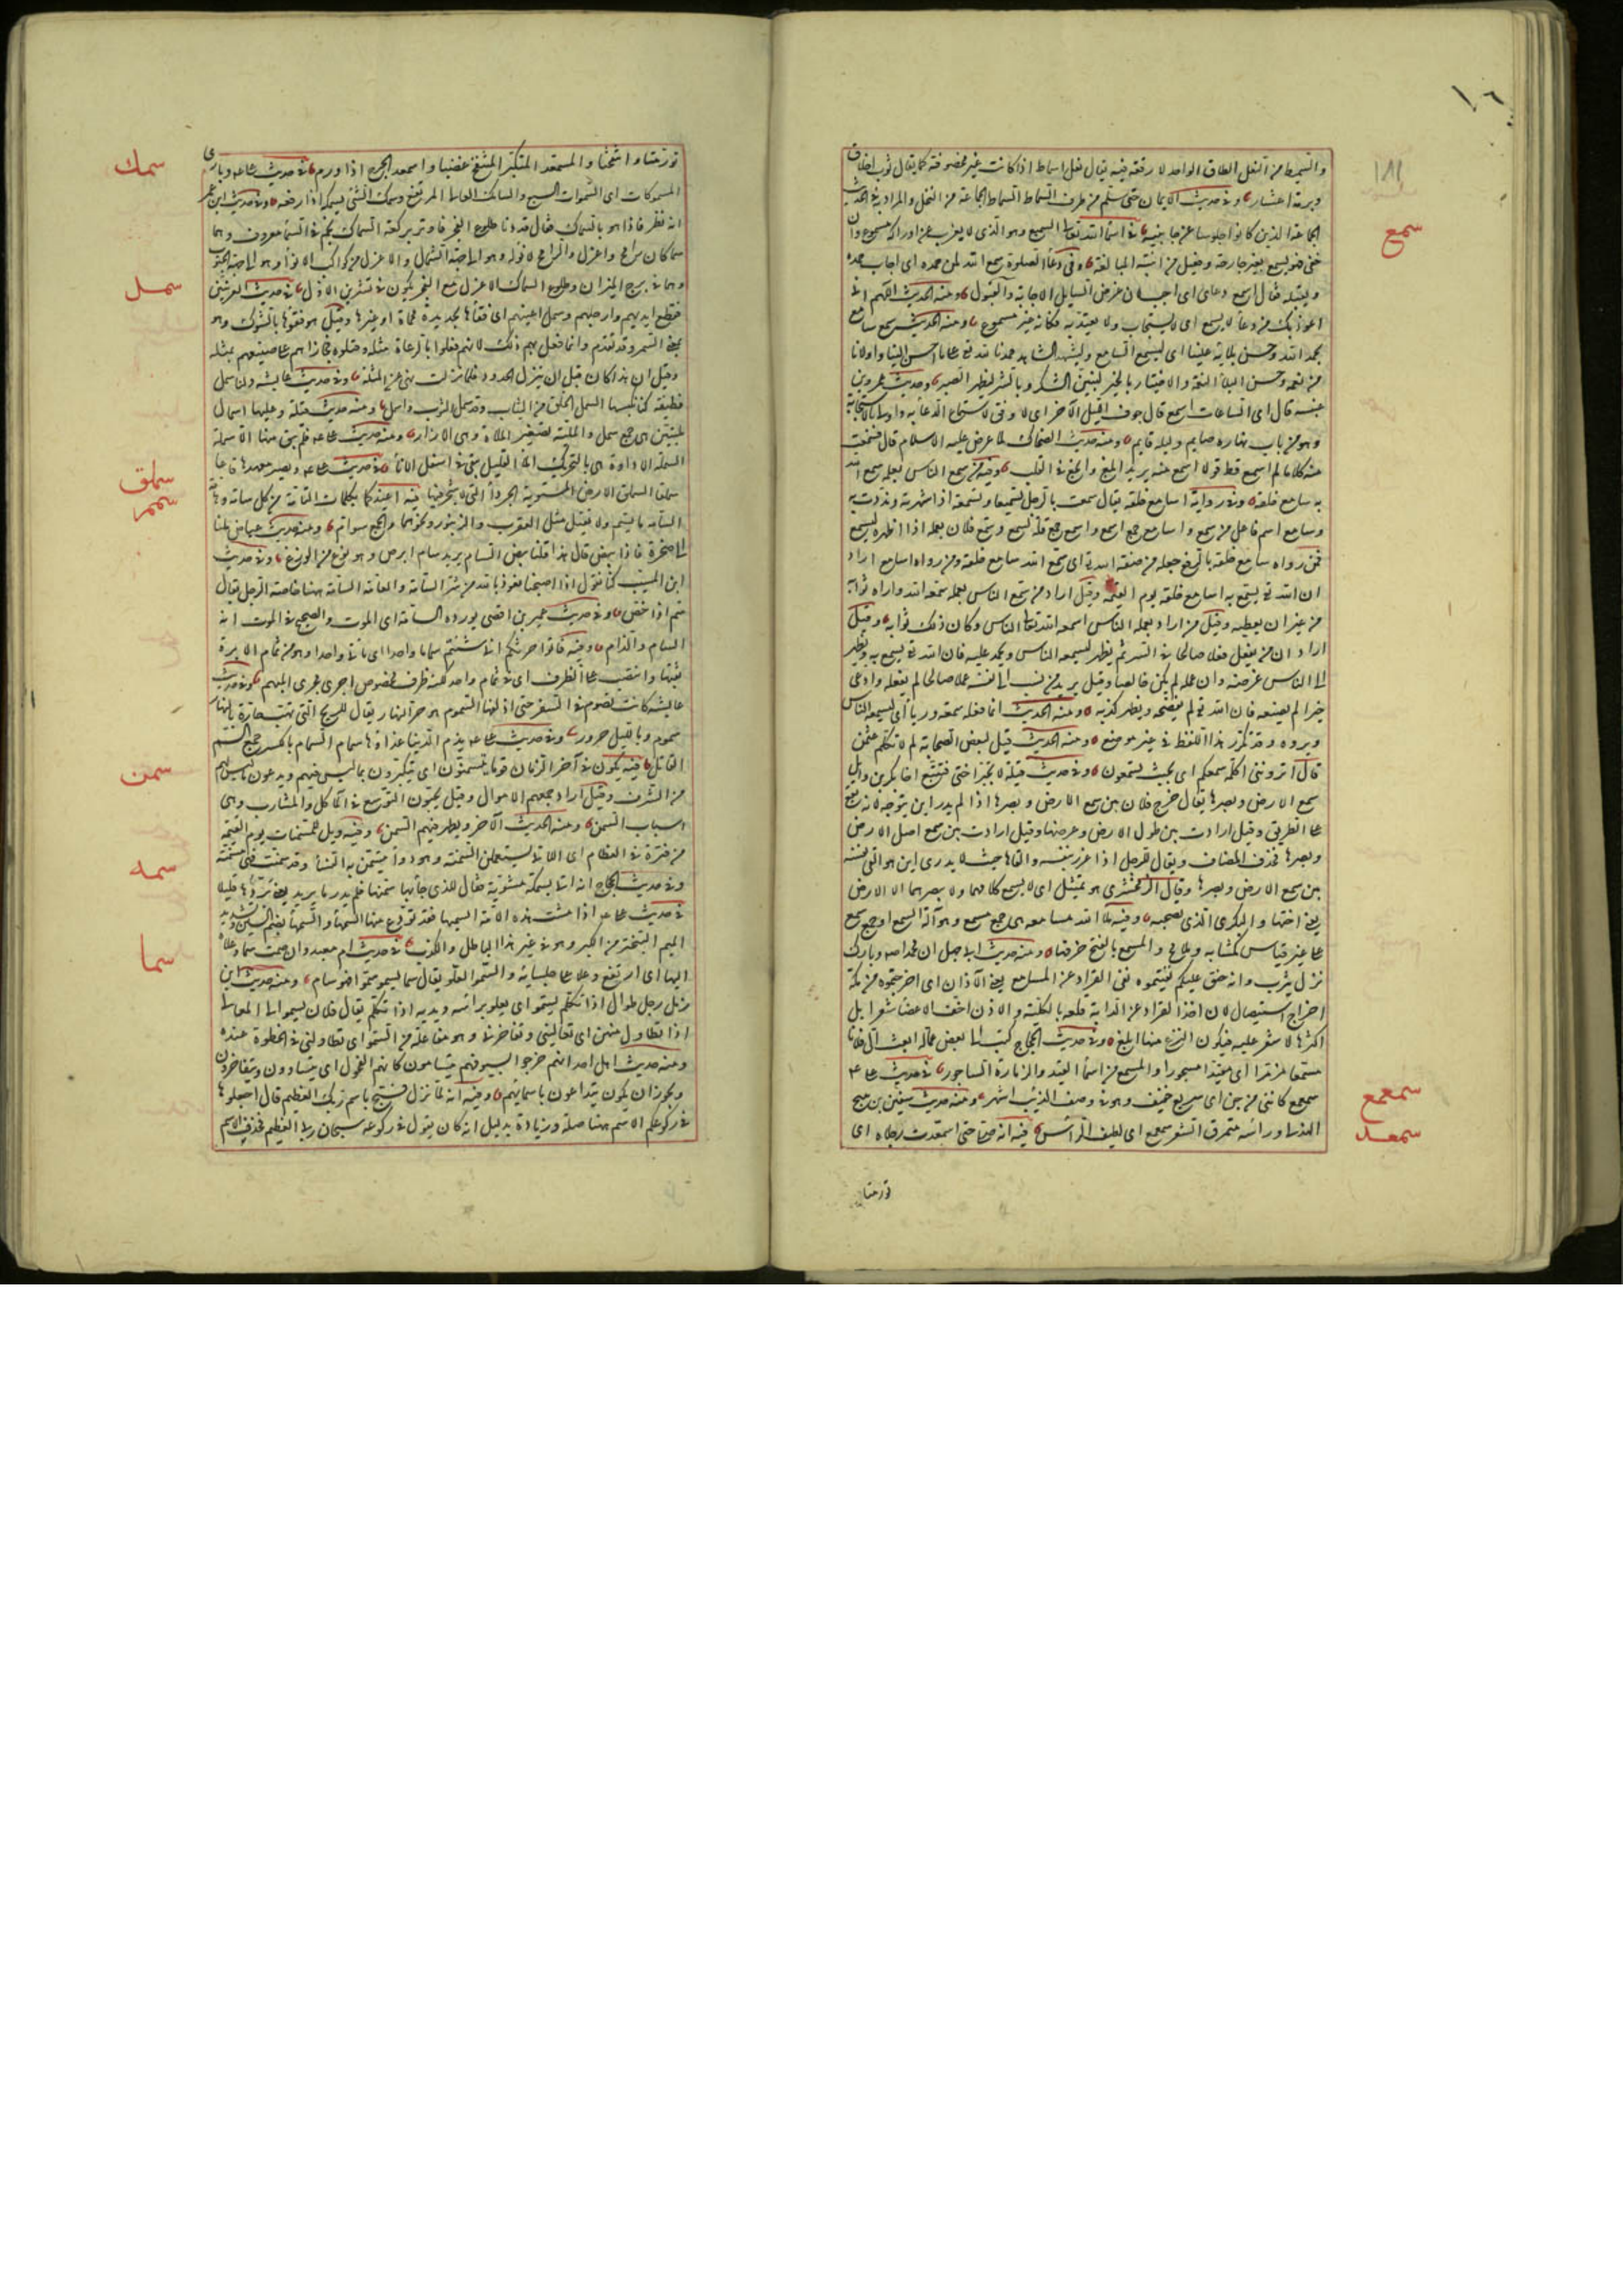 ١٨١
والسميط من النعل الطاق الواحد لا رقعة فيه يقال نعل اسماط اذا كانت غير مخصوفة كما يقال ثوب اخلاق
وبرمة اعشار وفى حديث الايمان حتى سلم من طرف السماط السماط الجماعة من النخل والمراد به فى الحديث
سمع
الجماعة الذين كانوا جلوسا عن جانبيه فى اسماء الله تعالى السميع وهو الذى لا يعزب عن ادراكه مسموع وان
خفى فهو يسمع بغير جارحة وفعيل من ابنية المبالغة وفى دعاء الصلوة سمع الله لمن حمده اى اجاب حمده
وتقبله يقال اسمع دعاى اى اجب لان غرض السايل الاجابة والقبول ومنه الحديث اللهم انى
اعوذ بك من دعاء لا يسمع اى لا يستجاب ولا يعتد به فكانه غير مسموع ومنه الحديث سمع سامع
بحمد الله وحسن بلائه علينا اى ليسمع السامع وليشهد الشاهد حمدنا لله تع على ما احسن الينا واولانا
من نعمه وحسن البلاء النعمة والاختبار بالخير ليتبين الشكر وبالشر ليظهر الصبر وحديث عمرو بن
عبسه قال اى الساعات اسمع قال جوف الليل الآخر اى اوفق لاستماع الدعاء فيه واولى بالاستجابة
وهو من باب نهاره صايم وليله قايم ومنه حديث الضحاك لما عرض عليه الاسلام قال فسمعت
منه كلاما لم اسمع قط قولا اسمع منه يريد ابلغ وانجع فى القلب وفيه من سمع الناس بعمله سمع الله
به سامع خلقه وفى رواية اسامع خلقه يقال سمعت بالرجل تسميعا وتسمعة اذا شهرته ونددت به
وسامع اسم فاعل من سمع واسامع جمع اسمع واسمع جمع قلة لسمع وسمع فلان بعمله اذا اظهره ليسمع
فمن رواه سامع خلقه بالرفع جعله من صفة الله تع اى سمع الله سامع خلقه ومن رواه اسامع اراد
ان الله تع يسمع به اسامع خلقه يوم القيمة وقيل اراد من سمع الناس بعمله سمعه الله واراه ثوابه
من غير ان يعطيه وقيل من اراد بعمله الناس اسمعه الله تعالى الناس وكان ذلك ثوابه وقيل
اراد ان من يفعل فعلا صالحا فى السر ثم يظهره ليسمعه الناس ويحمد عليه فان الله تع يسمع به ويظهر
الى الناس غرضه وان عمله لم يكن خالصا وقيل يريد من نسب الى نفسه عملا صالحا لم يفعله وادعى
خيرا لم يصنعه فان الله تع يفضحه ويظهر كذبه ومنه الحديث انما فعله سمعة ورياء اى ليسمعه الناس
ويروه وقد تكرر هذا اللفظ فى غير موضع ومنه الحديث قيل لبعض الصحابة لم لا تكلم عثمن
قال اترونى اكلمه سمعكم اى بحيث تسمعون وفى حديث قيلة لا تخبر اختى فتتبع اخا بكر بن وائل
سمع الارض وبصرها يقال خرج فلان بين سمع الارض وبصرها اذا لم يدر اين يتوجه لانه يقع
على الطريق وقيل ارادت بين طول الارض وعرضها وقيل ارادت بين سمع اهل الارض
وبصرها فحذف المضاف ويقال للرجل اذا غرر بنفسه والقاها حيث لا يدرى اين هو القى نفسه
بين سمع الارض وبصرها وقال الزمخشرى هو تمثيل اى لا يسمع كلامهما ولا يبصرهما الا الارض
يعنى اختها والبكرى الذى تصحبه وفيه ملأ الله مسامعه هى جمع مسمع وهو آلة السمع او جمع سمع
على غير قياس كمشابه وملامح والمسمع بالفتح خرقها ومنه حديث ابى جهل ان محمدا صم وبارك
نزل يثرب وانه حنق عليكم نفيتموه نفى القراد عن المسامع يعنى الآذان اى اخرجتموه من مكة
اخراج استيصال لان اخذ القراد عن الدابة قلعه بالكلية والاذن اخف الاعضاء شعرا بل
اكثرها لا شعر عليه فيكون النزع منها ابلغ وفى حديث الحجاج كتب الى بعض عماله ابعث الى فلانا
مسمعا مزمرا اى مقيدا مسجورا والمسمع من اسماء القيد والزمارة الساجور فى حديث على
سمعمع
سمعمع كاننى من جن اى سريع خفيف وهو فى وصف الذئب اشهر ومنه حديث سفين بن نبيح
سمعد
الهذلى وراسه متمرق الشعر سمعمع اى لطيف الراس فيه انه صلى حتى اسمعدت رجلاه اى
تورمتا
تورمتا وانتفختا والمسمعد المتكبر المنتفخ غضبا واسمعد الجرح اذا ورم فى حديث على وبارى
سمك
المسموكات اى السموات السبع والسامك العالى المرتفع وسمك الشئ يسمكه اذا رفعه وفى حديث ابن عمر
انه نظر فاذا هو بالسماك فقال قد دنا طلوع الفجر فاوتر بركعة السماك نجم فى السماء معروف وهما
سماكان رامح واعزل والرامح لا نوء له وهو الى جهة الشمال والاعزل من كواكب الانواء وهو الى جهة الجنوب
سمل
وهما فى برج الميزان وطلوع السماك الاعزل مع الفجر يكون فى تشرين الاول فى حديث العرنيين
فقطع ايديهم وارجلهم وسمل اعينهم اى فقأها بحديدة محماة او غيرها وقيل هو فقوها بالشوك وهو
بمعنى السمر وقد تقدم وانما فعل بهم ذلك لانهم فعلوا بالرعاة مثله وقتلوهم فجازاهم على صنيعهم بمثله
وقيل ان هذا كان قبل ان تنزل الحدود فلما نزلت نهى عن المثلة وفى حديث عايشه ولنا سمل
قطيفة كنا نلبسها السمل الخلق من الثياب وقد سمل الثوب واسمل ومنه حديث قيلة وعليها اسمال
مليتين هى جمع سمل والملية تصغير الملاة وهى الازار ومنه حديث على فلم يبق منها الا سملة
سملق
السملة الاداوة هى بالتحريك الماء القليل يبقى فى اسفل الاناء فى حديث على ويصير معهدها قاعا
سمم
سملقا السملق الارض المستوية الجرداء التى لا شجر فيها فيه اعيذكما بكلمات الله التامة من كل سامة وهامة
السامة ما يسم ولا يقتل مثل العقرب والزنبور ونحوهما والجمع سوام ومنه حديث عياض ملنا
الى صخرة فاذا بيض قال ما هذا قلنا بيض السام يريد سام ابرص وهو نوع من الوزغ وفى حديث
ابن المسيب كنا نقول اذا اصبحنا نعوذ بالله من شر السامة والعامة السامة هنا خاصة الرجل يقال
سم اذا خص وفى حديث عمير بن افصى يورده السامة اى الموت والصحيح فى الموت انه
السام والذام وفيه فاتوا حرثكم انى شئتم سماما واحدا اى ماتى واحدا وهو من سمام الابرة
ثقبها وانتصب على الظرف اى فى سمام واحد لكنه ظرف مخصوص اجرى مجرى المبهم وفى حديث
عايشه كانت تصوم فى السفر حتى اذلقها السموم هو حر النهار يقال للريح التى تهب حارة بالنهار
سموم وبالليل حرور وفى حديث على يذم الدنيا غذاؤها سمام السمام بالكسر جمع السم
سمن
القاتل فيه يكون فى آخر الزمان قوم يتسمنون اى يتكبرون بما ليس فيهم ويدعون ما ليس لهم
من الشرف وقيل اراد جمعهم الاموال وقيل يحبون التوسع فى المآكل والمشارب وهى
اسباب السمن ومنه الحديث الآخر ويظهر فيهم السمن وفيه ويل للمسمنات يوم القيمة
من فترة فى العظام اى اللاتى يستعملن السمنة وهو دواء يتسمن به النساء وقد سمنت فهى مسمنة
سمه
وفى حديث الحجاج انه اتى بسمكة مشوية فقال للذى جاء بها سمنها فلم يدر ما يريد يعنى بردها قليلا
فى حديث على اذا مشت هذه الامة السميهى فقد تودع منها السميهى والسميهى بضم السين وتشديد
سما
الميم التبختر من الكبر وهو فى غير هذا الباطل والكذب فى حديث ام معبد وان صمت سما وعلاه
البهاء اى ارتفع وعلا على جلسائه والسمو العلو يقال سما يسمو سموا فهو سام ومنه حديث ابن
زمل رجل طوال اذا تكلم يسمو اى يعلو براسه ويديه اذا تكلم يقال فلان يسمو الى المعالى
اذا تطاول منهن اى تعالينى وتفاخرنى وهو مفاعلة من السمو اى تطاولنى فى الحظوة عنده
ومنه حديث اهل احد انهم خرجوا بسيوفهم يتسامون كانهم الفحول اى يتبارون ويتفاخرون
ويجوز ان يكون يتداعون باسمائهم وفيه انه لما نزل فسبح باسم ربك العظيم قال اجعلوها
فى ركوعكم الاسم هنا صلة وزيادة بدليل انه كان يقول فى ركوعه سبحان ربى العظيم فحذف الاسم